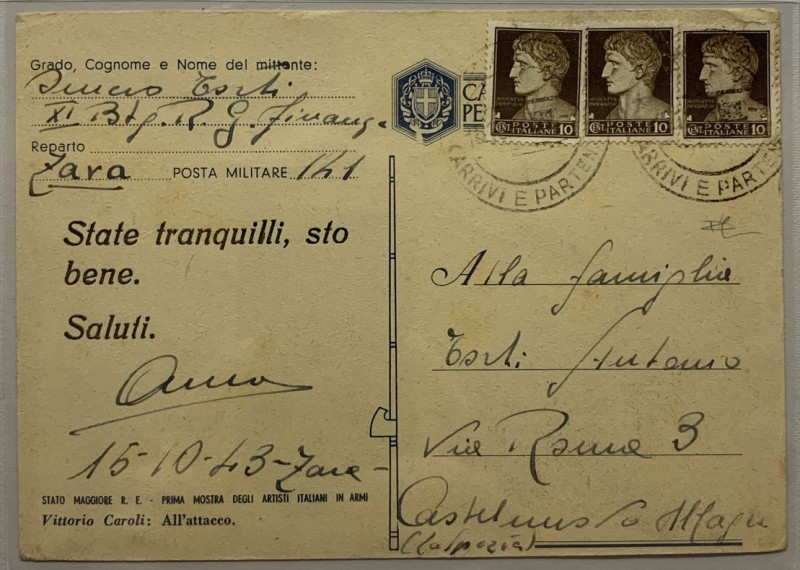 Grado, Cognome e Nome del mittente:
Torti
XI Btg. R. G. Finanza
Reparto
Zara POSTA MILITARE 141
State tranquilli, sto
bene.
Saluti.
15-10-43-Zara-
STATO MAGGIORE R. E. - PRIMA MOSTRA DEGLI ARTISTI ITALIANI IN ARMI
Vittorio Caroli: All'attacco.
CA
PE
POSTE ITALIANE CENT. 10
POSTE ITALIANE CENT. 10
POSTE ITALIANE CENT. 10
ARRIVI E PARTEN
ARRIVI E PARTEN
Alla famiglia
Torti Antonio
Via Roma 3
Castelnuovo Magra
(La Spezia)